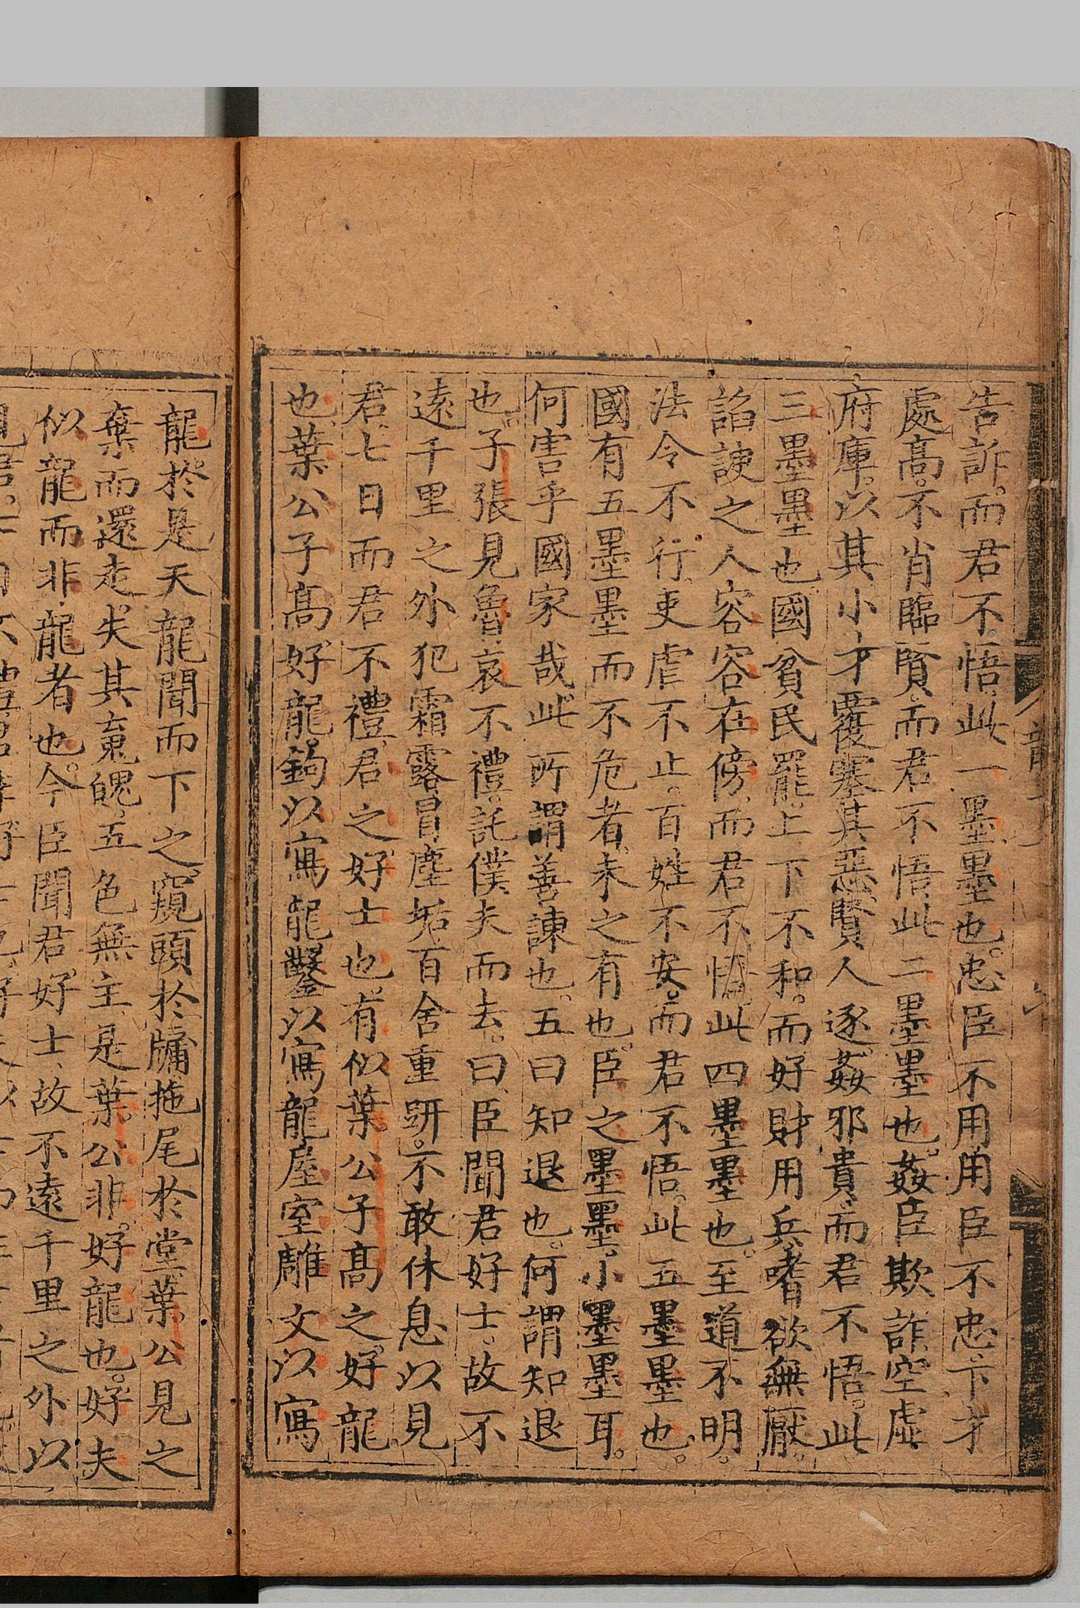 告訴而君不悟此一墨墨也忠臣不用用臣不忠卞才
處高不肖臨賢而君不悟此二墨墨也姦臣欺詐空虛
府庫以其小才覆塞其惡賢人逐姦邪貴而君不悟此
三墨墨也國貧民罷上下不和而好財用兵嗜欲無厭
諂諛之人容容在傍而君不悟此四墨墨也至道不明
法令不行吏虐不止百姓不安而君不悟此五墨墨也
國有五墨墨而不危者未之有也臣之墨墨小墨墨耳
何害乎國家哉此所謂善諫也五曰知退也何謂知退
也子張見魯哀不禮託僕夫而去曰臣聞君好士故不
遠千里之外犯霜露冒塵垢百舍重趼不敢休息以見
君七日而君不禮君之好士也有似葉公子高之好龍
也葉公子高好龍鉤以寫龍鑿以寫龍屋室雕文以寫
龍於是天龍聞而下之窺頭於牖拖尾於堂葉公見之
棄而還走失其魂魄五色無主是葉公非好龍也好夫
似龍而非龍者也今臣聞君好士故不遠千里之外以